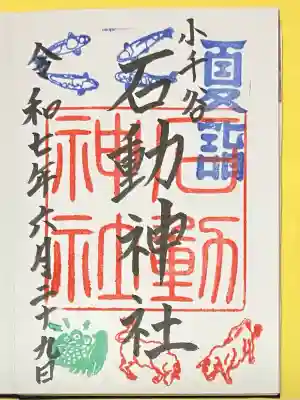 夏詣
小千谷
石動神社
石動神社
令和七年六月二十九日